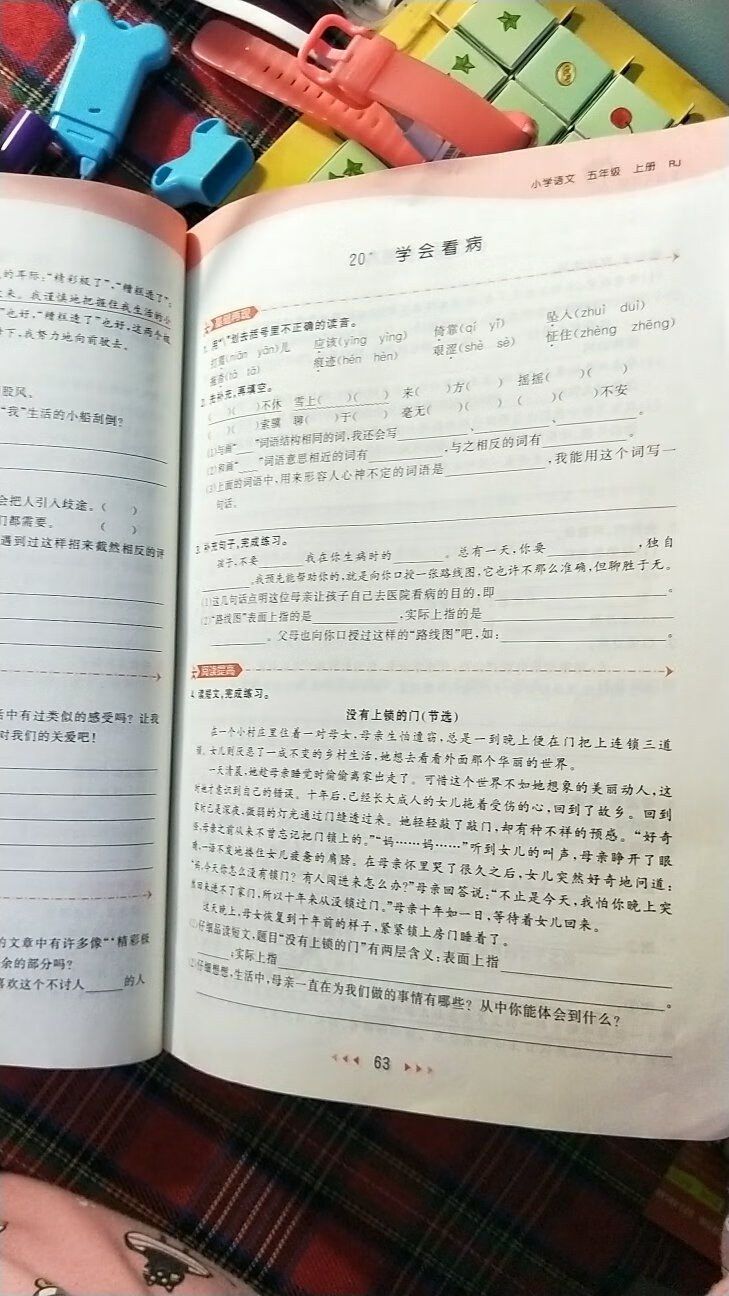 的耳际:“精彩极了”,“糟糕透了”;
来。我谨慎地把握住我生活的小
”也好,“糟糕透了”也好,这两个极
下,我努力地向前驶去。
股风。
“我”生活的小船刮倒?
会把人引入歧途。(　　)
们都需要。(　　)
遇到过这样招来截然相反的评
活中有过类似的感受吗?让我
对我们的关爱吧!
的文章中有许多像“‘精彩极
余的部分吗?
喜欢这个不讨人______的人
小学语文　五年级　上册　RJ
20*　学会看病
基础再现
1. 用“\”划去括号里不正确的读音。
打蔫(niān　yān)儿　应该(yīng　yìng)　倚靠(qí　yǐ)　坠人(zhuì　duì)
拖沓(tà　tā)　痕迹(hén　hèn)　艰涩(shè　sè)　怔住(zhèng　zhēng)
2. 先补充,再填空。
(　)(　)不休　雪上(　)(　)　来(　)方(　)　摇摇(　)(　)
(　)(　)索骥　聊(　)于(　)　毫无(　)(　)　(　)(　)不安
(1)与画“____”词语结构相同的词,我还会写________、________、________。
(2)和画“____”词语意思相近的词有________,与之相反的词有________。
(3)上面的词语中,用来形容人心神不定的词语是________,我能用这个词写一
句话。
3. 补充句子,完成练习。
孩子,不要______我在你生病时的______。总有一天,你要________,独自
______。我预先能帮助你的,就是向你口授一张路线图,它也许不那么准确,但聊胜于无。
(1)这几句话点明这位母亲让孩子自己去医院看病的目的,即________________。
(2)“路线图”表面上指的是________,实际上指的是________________
______。父母也向你口授过这样的“路线图”吧,如:________________。
阅读提高
4. 读短文,完成练习。
没有上锁的门(节选)
在一个小村庄里住着一对母女,母亲生怕遭窃,总是一到晚上便在门把上连锁三道
锁。女儿则厌恶了一成不变的乡村生活,她想去看看外面那个华丽的世界。
一天清晨,她趁母亲睡觉时偷偷离家出走了。可惜这个世界不如她想象的美丽动人,这
时她才意识到自己的错误。十年后,已经长大成人的女儿拖着受伤的心,回到了故乡。回到
家时已是深夜,微弱的灯光通过门缝透过来。她轻轻敲了敲门,却有种不祥的预感。“好奇
怪,母亲之前从来不曾忘记把门锁上的。”“妈……妈……”听到女儿的叫声,母亲睁开了眼
睛,一语不发地搂住女儿疲惫的肩膀。在母亲怀里哭了很久之后,女儿突然好奇地问道:
“妈,今天你怎么没有锁门?有人闯进来怎么办?”母亲回答说:“不止是今天,我怕你晚上突
然回来进不了家门,所以十年来从没锁过门。”母亲十年如一日,等待着女儿回来。
这天晚上,母女恢复到十年前的样子,紧紧锁上房门睡着了。
(1)仔细品读短文,题目“没有上锁的门”有两层含义:表面上指________________
______;实际上指________________________________。
(2)仔细想想,生活中,母亲一直在为我们做的事情有哪些?从中你能体会到什么?
63